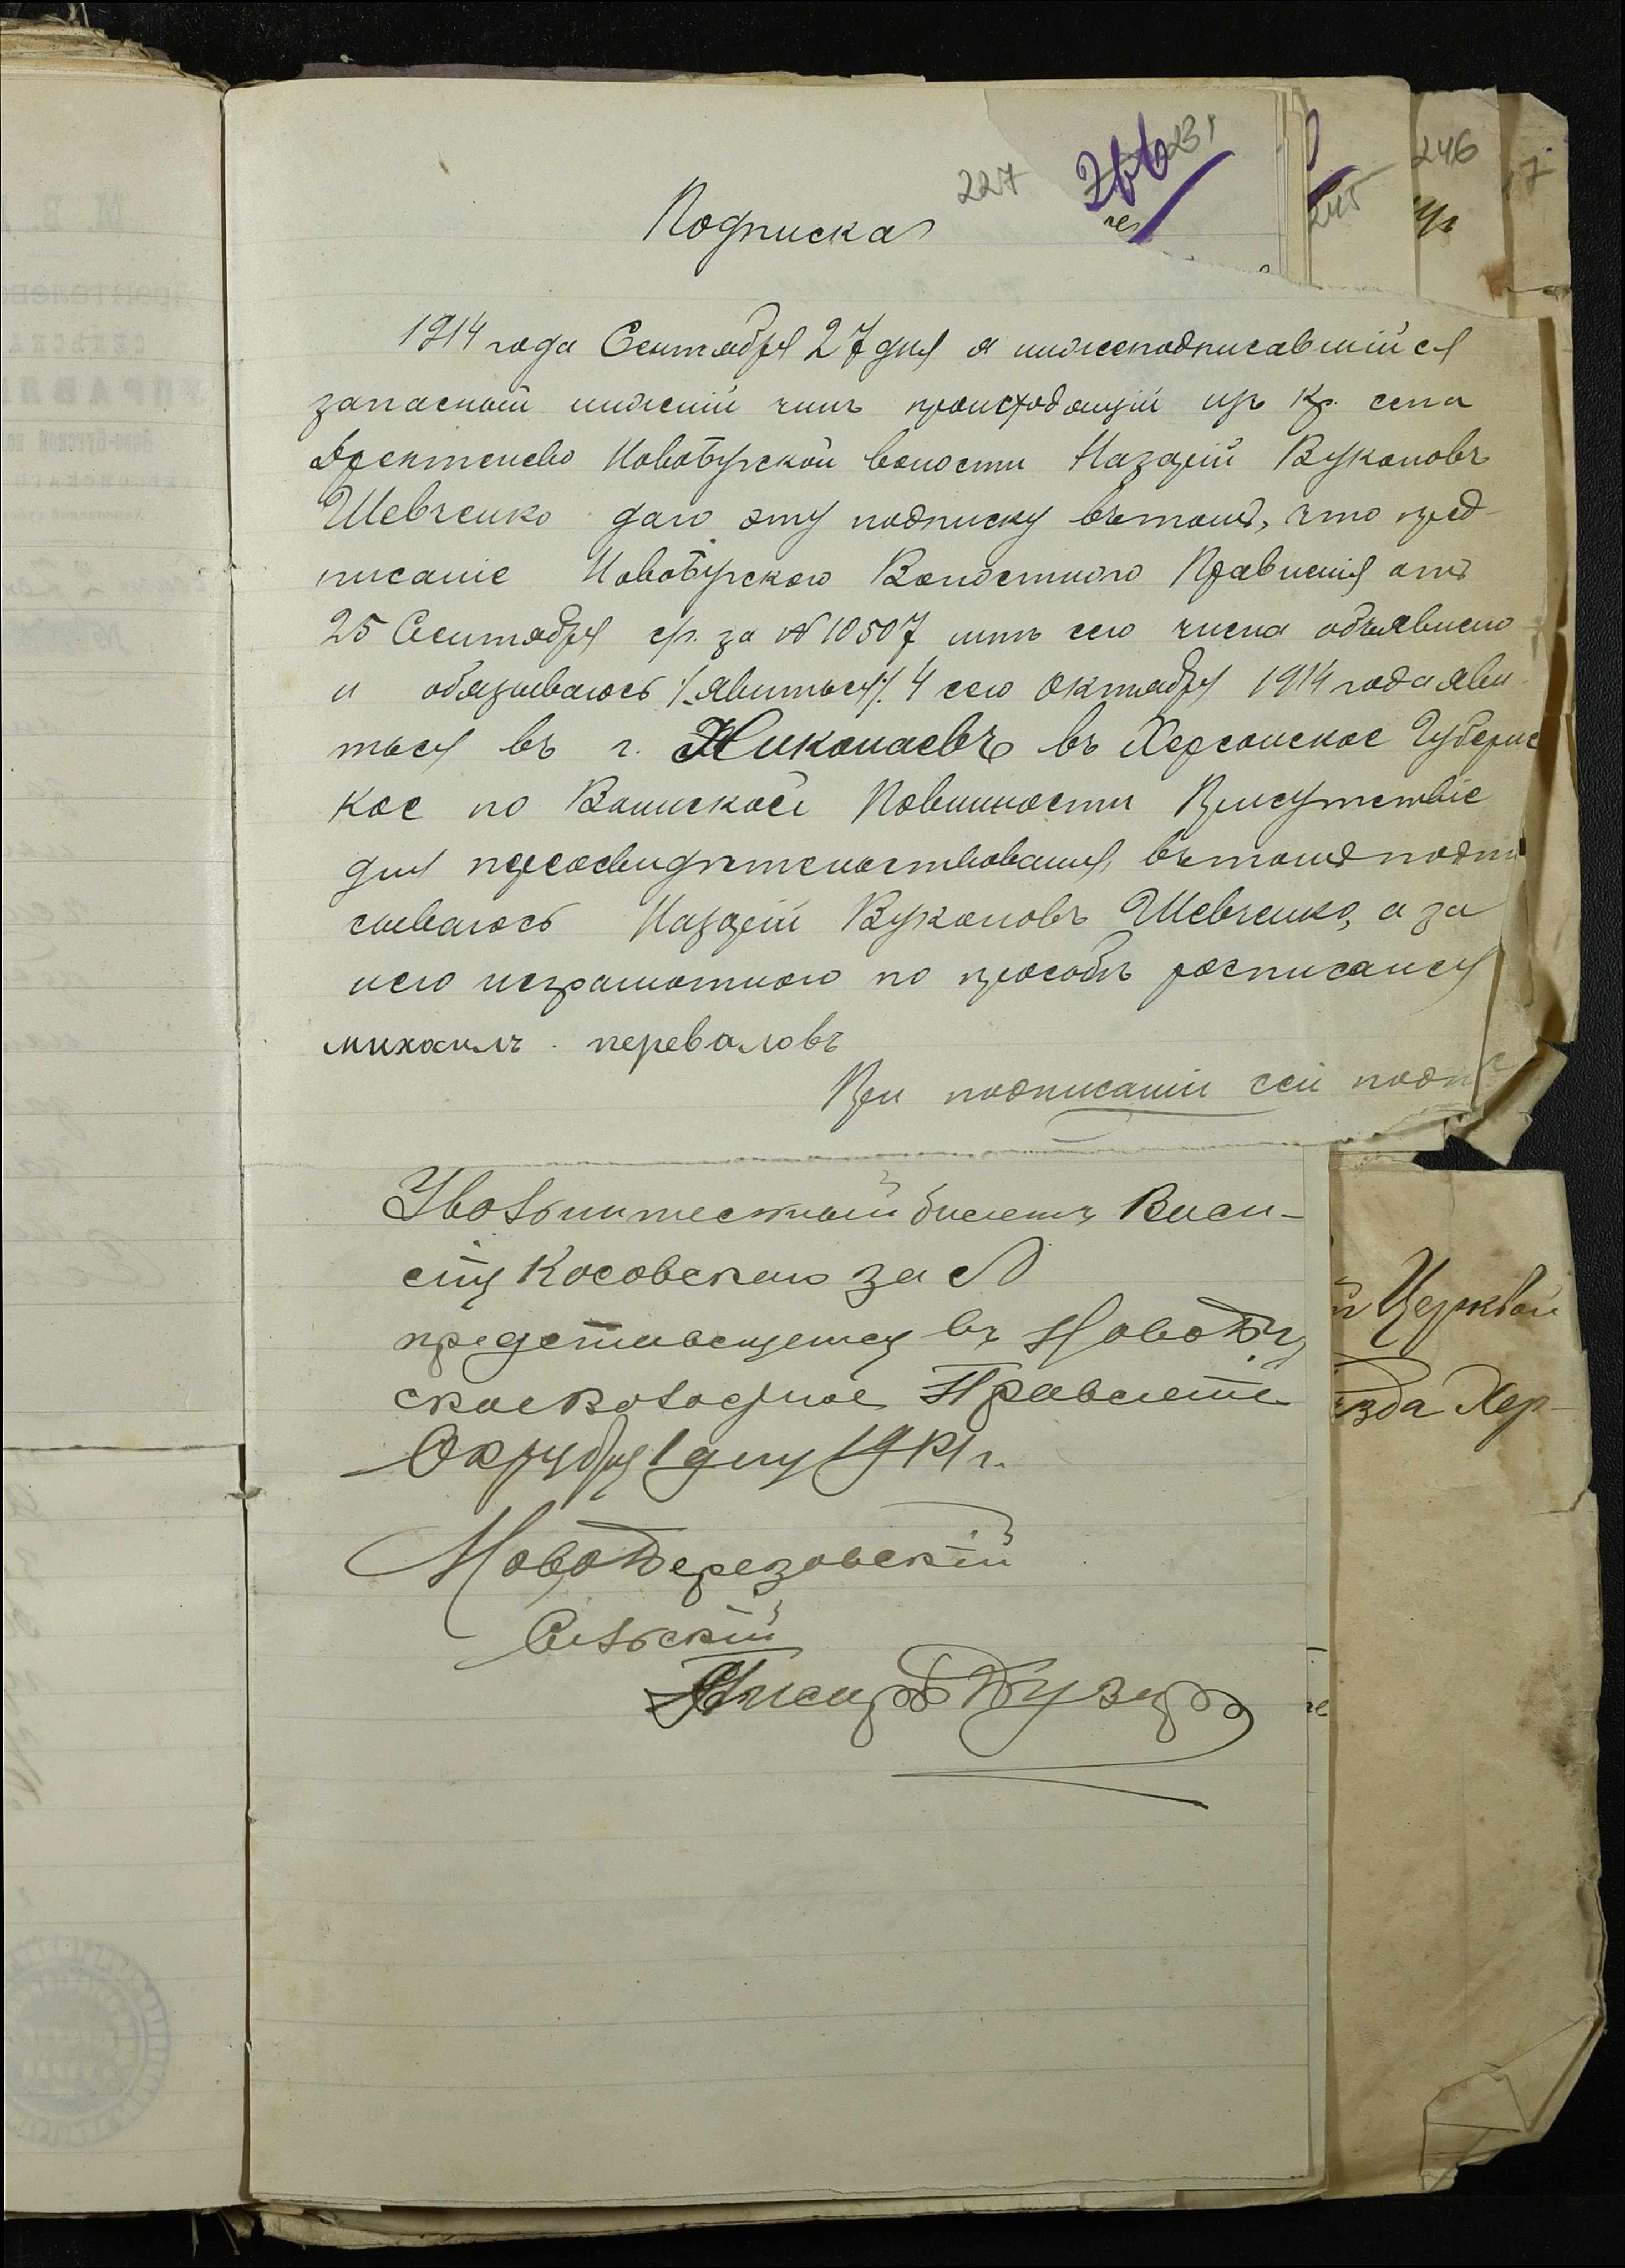 227
231
246
245
Подписка
1914 года Сентября 27 дня я нижеподписавшійся
запасный нижній чинъ происходящій изъ кр. села
Новобугской волости Назарій Вуколовъ
Шевченко даю эту подписку въ томъ, что пред-
писаніе Новобугского Волостного Правленія отъ
25 Сентября с/г. за № 10507 мнѣ сего числа объявлено
и обязываюсь /:явиться:/ 4 сего Октября 1914 года яви-
ться въ г. Николаевъ въ Херсонское Губернс
кое по Воинской Повинности Присутствіе
для переосвидѣтельствованія, въ томъ подпи
сываюсь Назарій Вуколовъ Шевченко, а за
него неграмотного по прособѣ росписался
михаилъ переваловъ
При подписаніи сей подпис
Увольнительный билетъ Васи-
Косовскаго за №
представляется въ Новобуг
ское Волосное Правленіе
Октября 1 дня 1914 г.
Новоберезовскій
Сельскій
Писарь
Церквой
ѣзда Хер-